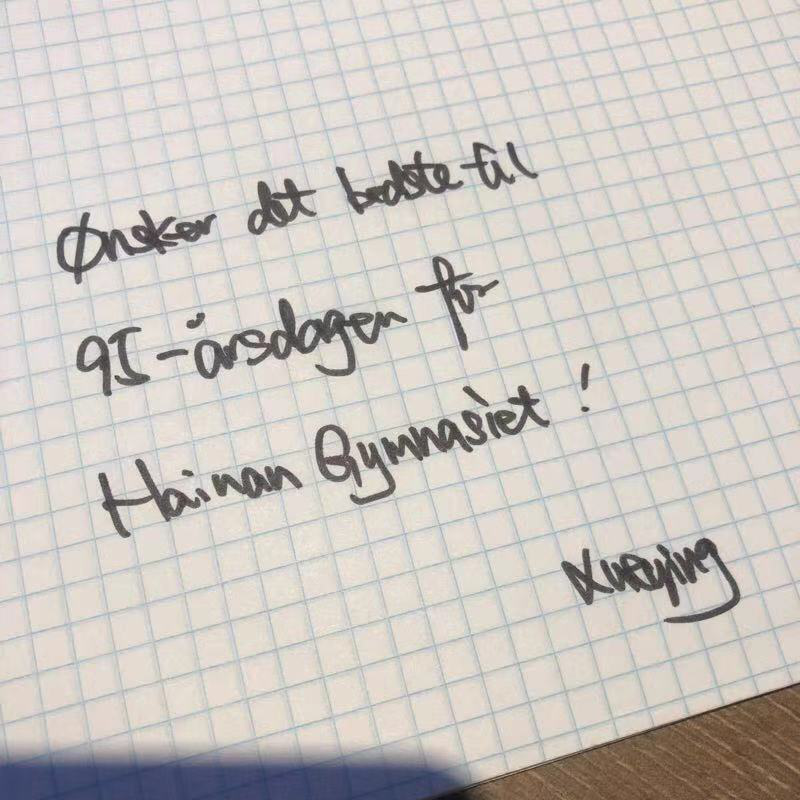 Ønsker det bedste til
95-årsdagen for
Hainan Gymnasiet!
Xueying